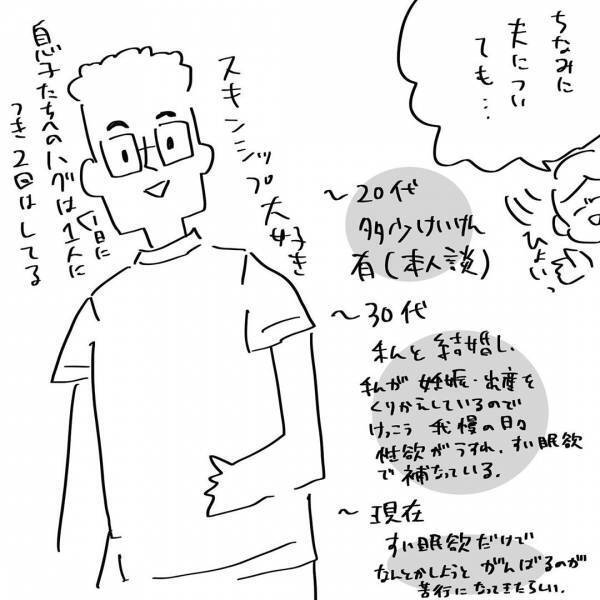 ちなみに
夫につい
ても…
ひょいっ
スキンシップ大好き
息子たちへのハグは1人に
つき2回はしてる
1日に
〜20代
多少けいけん
有(本人談)
〜30代
私と結婚し、
私が妊娠・出産を
くりかえしているので
けっこう我慢の日々
性欲がうすれ、すい眠欲
で補なっている。
〜現在
すい眠欲だけで
なんとかしようとがんばるのが
苦行になってきたらしい。